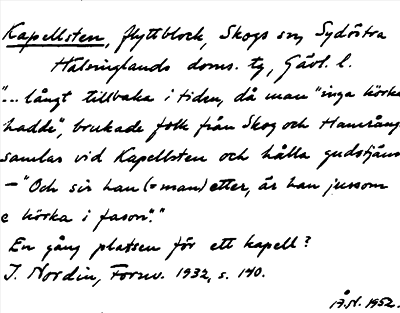 Kapellsten, flyttblock, Skogs sn, Sydöstra
Hälsinglands doms. tg, Gävl. l.
"... långt tillbaka i tiden, då man "inga körka
hadde", brukade folk från Skog och Hamrång
samlas vid Kapellsten och hålla gudstjäns
– "Och sir han (= man) etter, är han jussom
e körka i fason"."
En gång platsen för ett kapell?
J. Nordin, Fornv. 1932, s. 140.
1952.